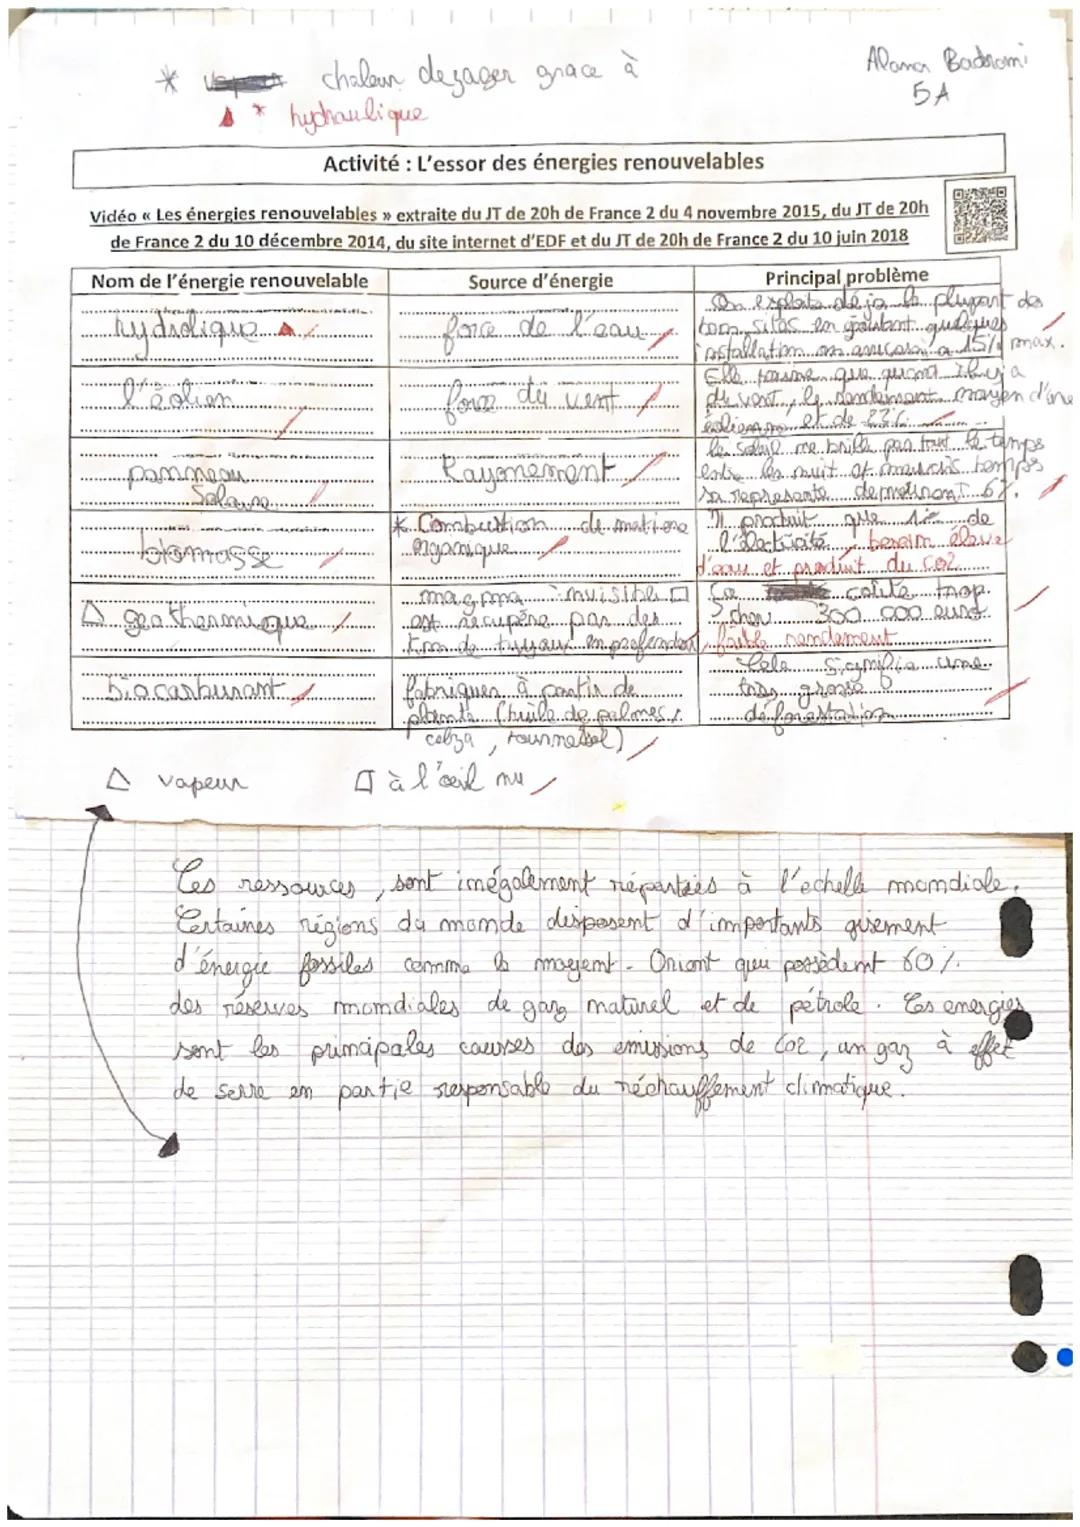 * chaleur dezager grace à
Badrami
5A
* hydraulique
Activité : L'essor des énergies renouvelables
Vidéo « Les énergies renouvelables » extraite du JT de 20h de France 2 du 4 novembre 2015, du JT de 20h
de France 2 du 10 décembre 2014, du site internet d'EDF et du JT de 20h de France 2 du 10 juin 2018
Nom de l'énergie renouvelable
Source d'énergie
Principal problème
hydrolique
force de l'eau
On exploite déja la plupart des
bons sites en ajoutant quelques
installation on 15% max.
l'éolien
force du vent
Elle tourne que quand il y a
du vent, le rendement moyen d'une
éolienne et de 23%
panneau
Solaire
Rayonement
le soleil ne brille pas tout le temps
entre les nuit et mauvais temps
sa represente 6%.
biomasse
* Combustion de matiere
organique
Il produit que 1% de
l'électricité, besoin élevé
d'eau et produit du CO2
△ geothermique
magma invisible □
est récupéré par des
km de tuyaux en profondeur
Ca coûte trop
cher 300 000 euros
faible rendement
biocarburant
fabriquer à partir de
plante (huile de palmes,
colza, tournesol)
Cela signifie une
très grosse
déforestation
△ vapeur
□ à l'œil nu
Ces ressources, sont inégalement réparties à l'echelle mondiale.
Certaines régions du monde disposent d'importants gisement
d'énergie fossiles comme le moyent-Oriant qui possèdent 60%
des réserves mondiales de gaz naturel et de pétrole. Ces energies
sont les principales causes des émissions de CO2, un gaz à effet
de serre en partie responsable du réchauffement climatique.